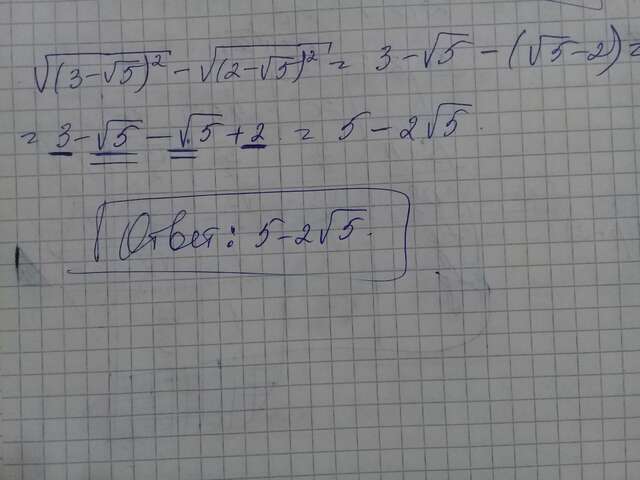 √(3-√5)² - √(2-√5)² = 3-√5-(√5-2)=
= 3-√5-√5+2 = 5-2√5.
Ответ: 5-2√5.